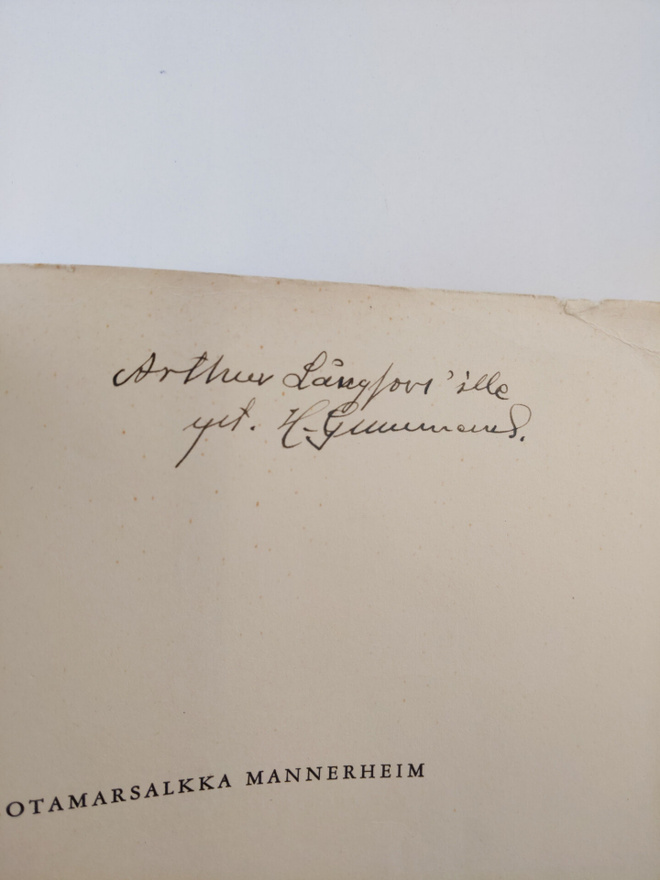 Arthur Långfors'ille
yst. H. Gummerus.
OTAMARSALKKA MANNERHEIM